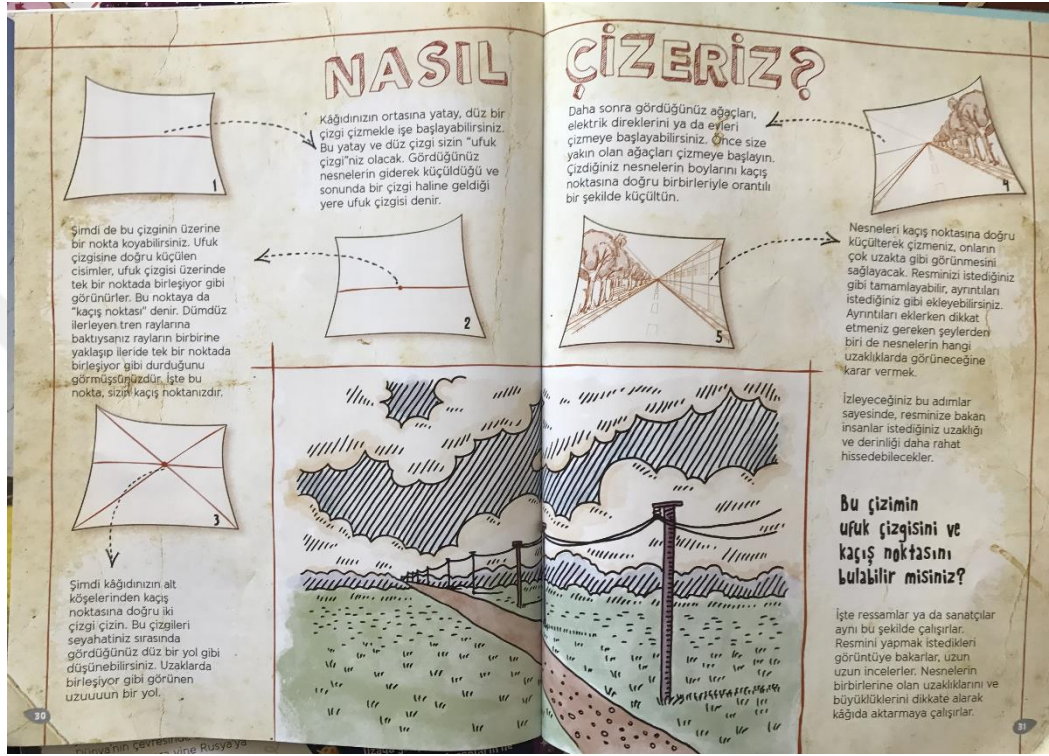 NASIL ÇİZERİZ?
1
Kâğıdınızın ortasına yatay, düz bir
çizgi çizmekle işe başlayabilirsiniz.
Bu yatay ve düz çizgi sizin "ufuk
çizgi"niz olacak. Gördüğünüz
nesnelerin giderek küçüldüğü ve
sonunda bir çizgi haline geldiği
yere ufuk çizgisi denir.
Şimdi de bu çizginin üzerine
bir nokta koyabilirsiniz. Ufuk
çizgisine doğru küçülen
cisimler, ufuk çizgisi üzerinde
tek bir noktada birleşiyor gibi
görünürler. Bu noktaya da
"kaçış noktası" denir. Dümdüz
ilerleyen tren raylarına
baktıysanız rayların birbirine
yaklaşıp ileride tek bir noktada
birleşiyor gibi durduğunu
görmüşsünüzdür. İşte bu
nokta, sizin kaçış noktanızdır.
2
3
Şimdi kâğıdınızın alt
köşelerinden kaçış
noktasına doğru iki
çizgi çizin. Bu çizgileri
seyahatiniz sırasında
gördüğünüz düz bir yol gibi
düşünebilirsiniz. Uzaklarda
birleşiyor gibi görünen
uzuuuun bir yol.
30
Daha sonra gördüğünüz ağaçları,
elektrik direklerini ya da evleri
çizmeye başlayabilirsiniz. Önce size
yakın olan ağaçları çizmeye başlayın.
Çizdiğiniz nesnelerin boylarını kaçış
noktasına doğru birbirleriyle orantılı
bir şekilde küçültün.
4
5
Nesneleri kaçış noktasına doğru
küçülterek çizmeniz, onların
çok uzakta gibi görünmesini
sağlayacak. Resminizi istediğiniz
gibi tamamlayabilir, ayrıntıları
istediğiniz gibi ekleyebilirsiniz.
Ayrıntıları eklerken dikkat
etmeniz gereken şeylerden
biri de nesnelerin hangi
uzaklıklarda görüneceğine
karar vermek.
İzleyeceğiniz bu adımlar
sayesinde, resminize bakan
insanlar istediğiniz uzaklığı
ve derinliği daha rahat
hissedebilecekler.
Bu çizimin
ufuk çizgisini ve
kaçış noktasını
bulabilir misiniz?
İşte ressamlar ya da sanatçılar
aynı bu şekilde çalışırlar.
Resmini yapmak istedikleri
görüntüye bakarlar, uzun
uzun incelerler. Nesnelerin
birbirlerine olan uzaklıklarını ve
büyüklüklerini dikkate alarak
kâğıda aktarmaya çalışırlar.
31
Dünya'nın çevresinde
yine Rusya'ya